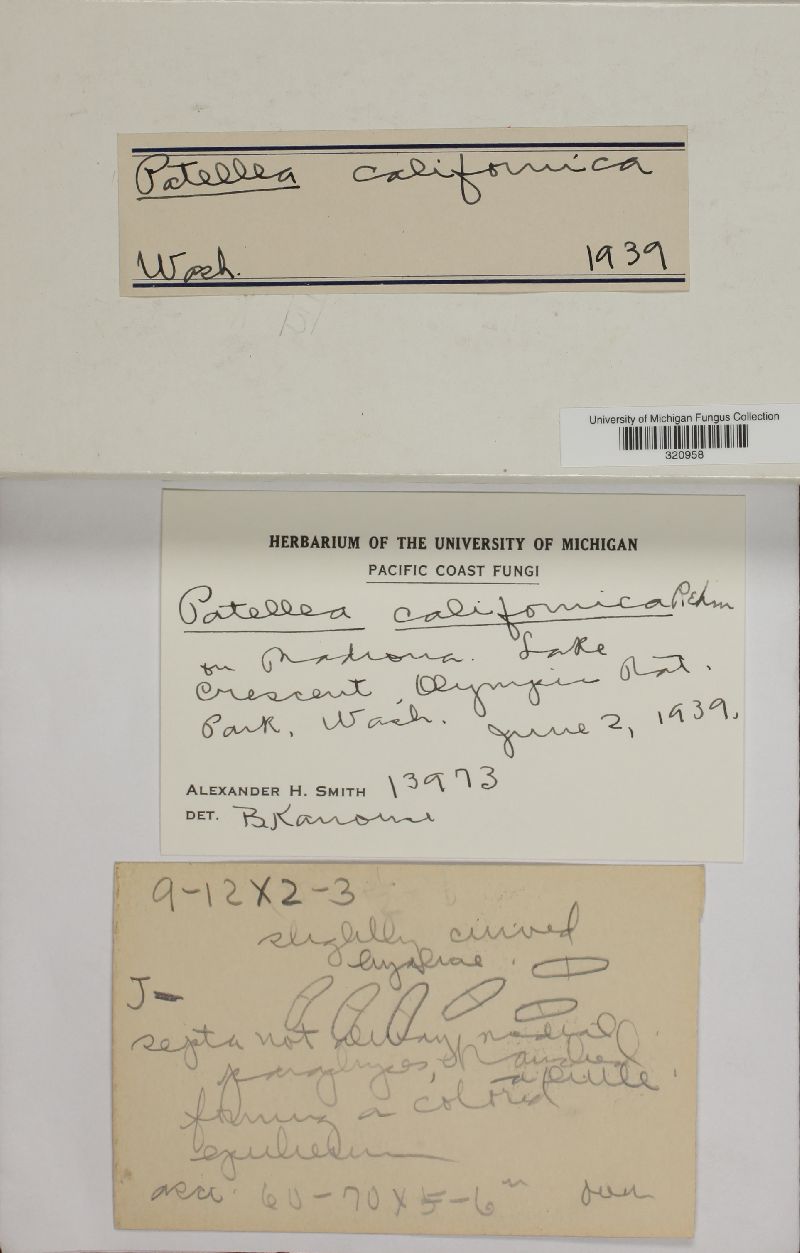 Patellea californica
Wash. 1939
University of Michigan Fungus Collection
320958
HERBARIUM OF THE UNIVERSITY OF MICHIGAN
PACIFIC COAST FUNGI
Patellea californica Rehm
on Madrona. Lake
Crescent, Olympic Nat.
Park, Wash. June 2, 1939.
ALEXANDER H. SMITH 13973
DET. B Kanouse
9-12 X 2-3
slightly curved
hyaline.
J-
septa not always medial
paraphyses, branched
a little.
forming a colored
epithecium
asci 60-70 X 5-6